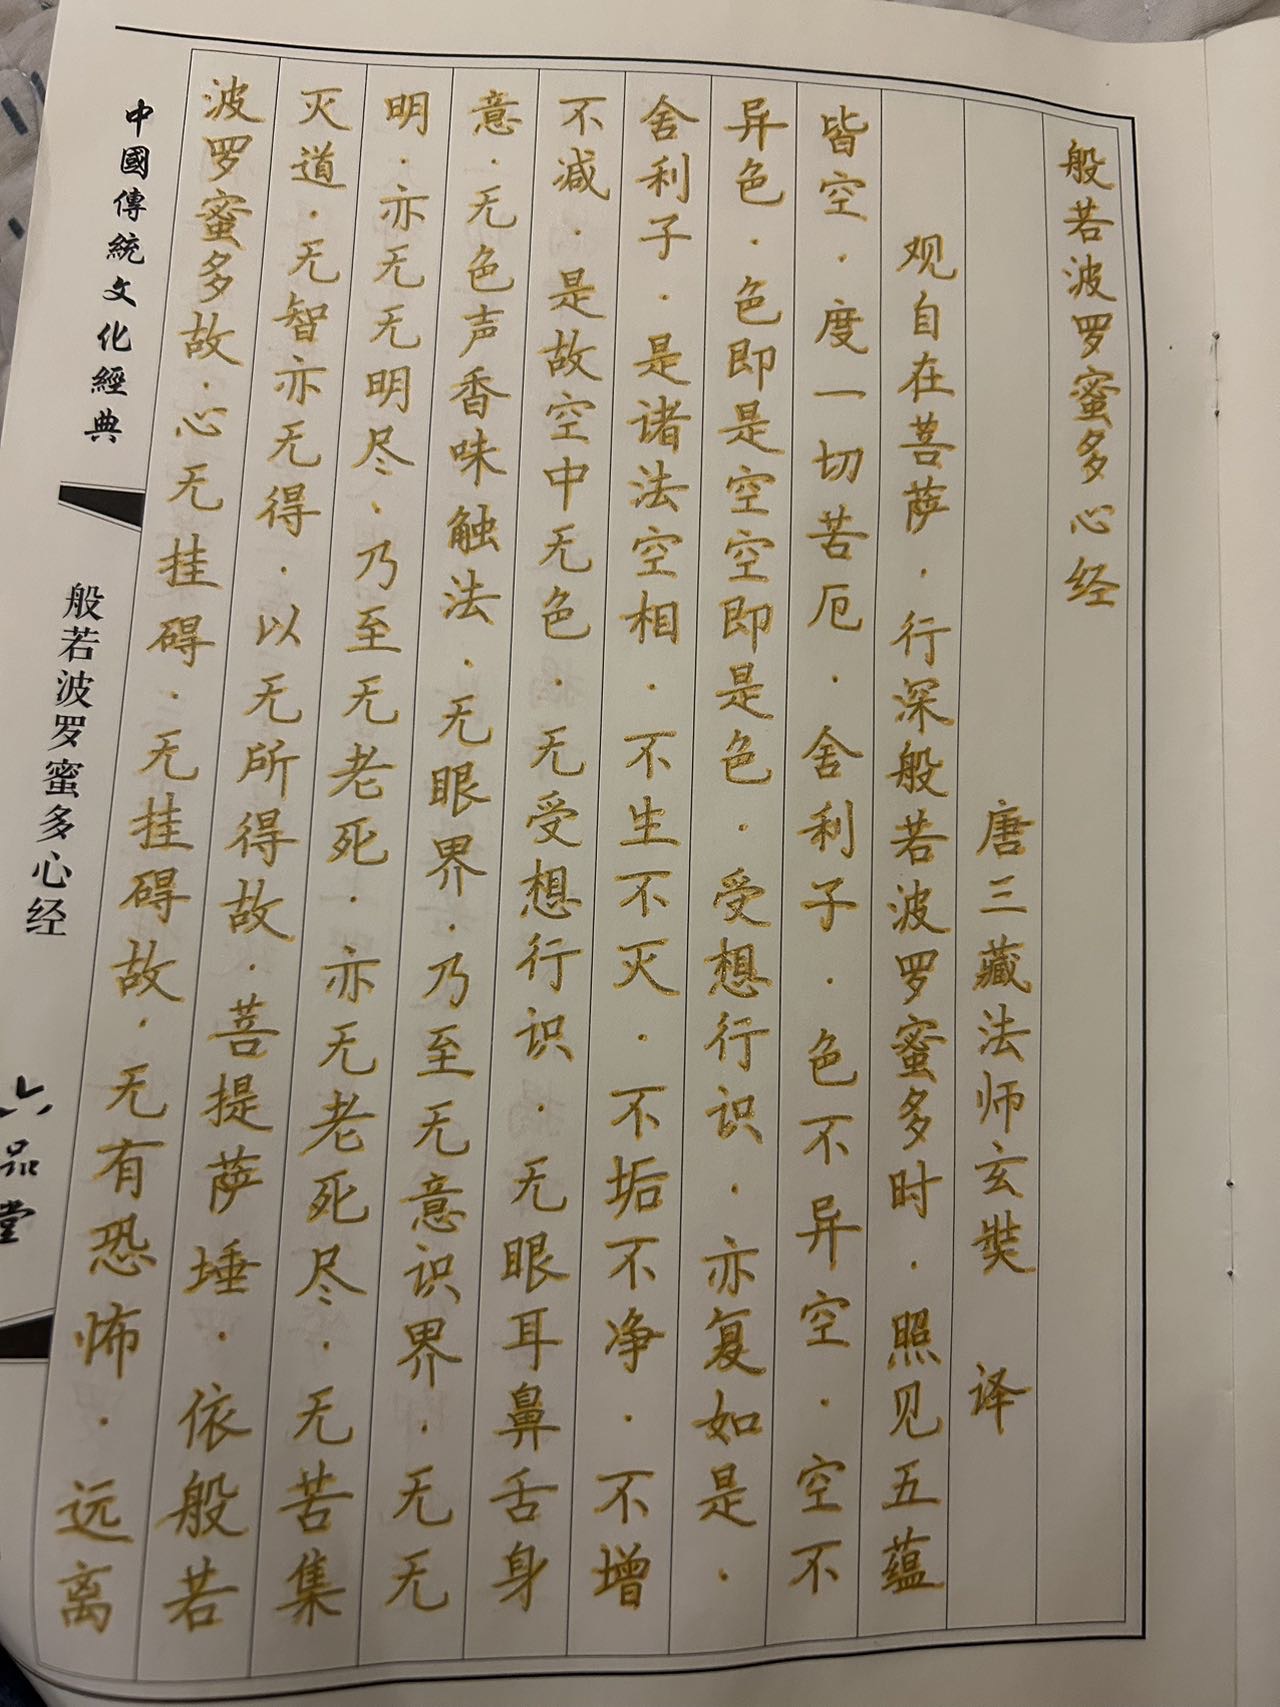 般若波罗蜜多心经
唐三藏法师玄奘 译
观自在菩萨·行深般若波罗蜜多时·照见五蕴
皆空·度一切苦厄·舍利子·色不异空·空不
异色·色即是空空即是色·受想行识·亦复如是·
舍利子·是诸法空相·不生不灭·不垢不净·不增
不减·是故空中无色·无受想行识·无眼耳鼻舌身
意·无色声香味触法·无眼界·乃至无意识界·无无
明·亦无无明尽·乃至无老死·亦无老死尽·无苦集
灭道·无智亦无得·以无所得故·菩提萨埵·依般若
波罗蜜多故·心无挂碍·无挂碍故·无有恐怖·远离
中國傳統文化經典
般若波罗蜜多心经
六品堂